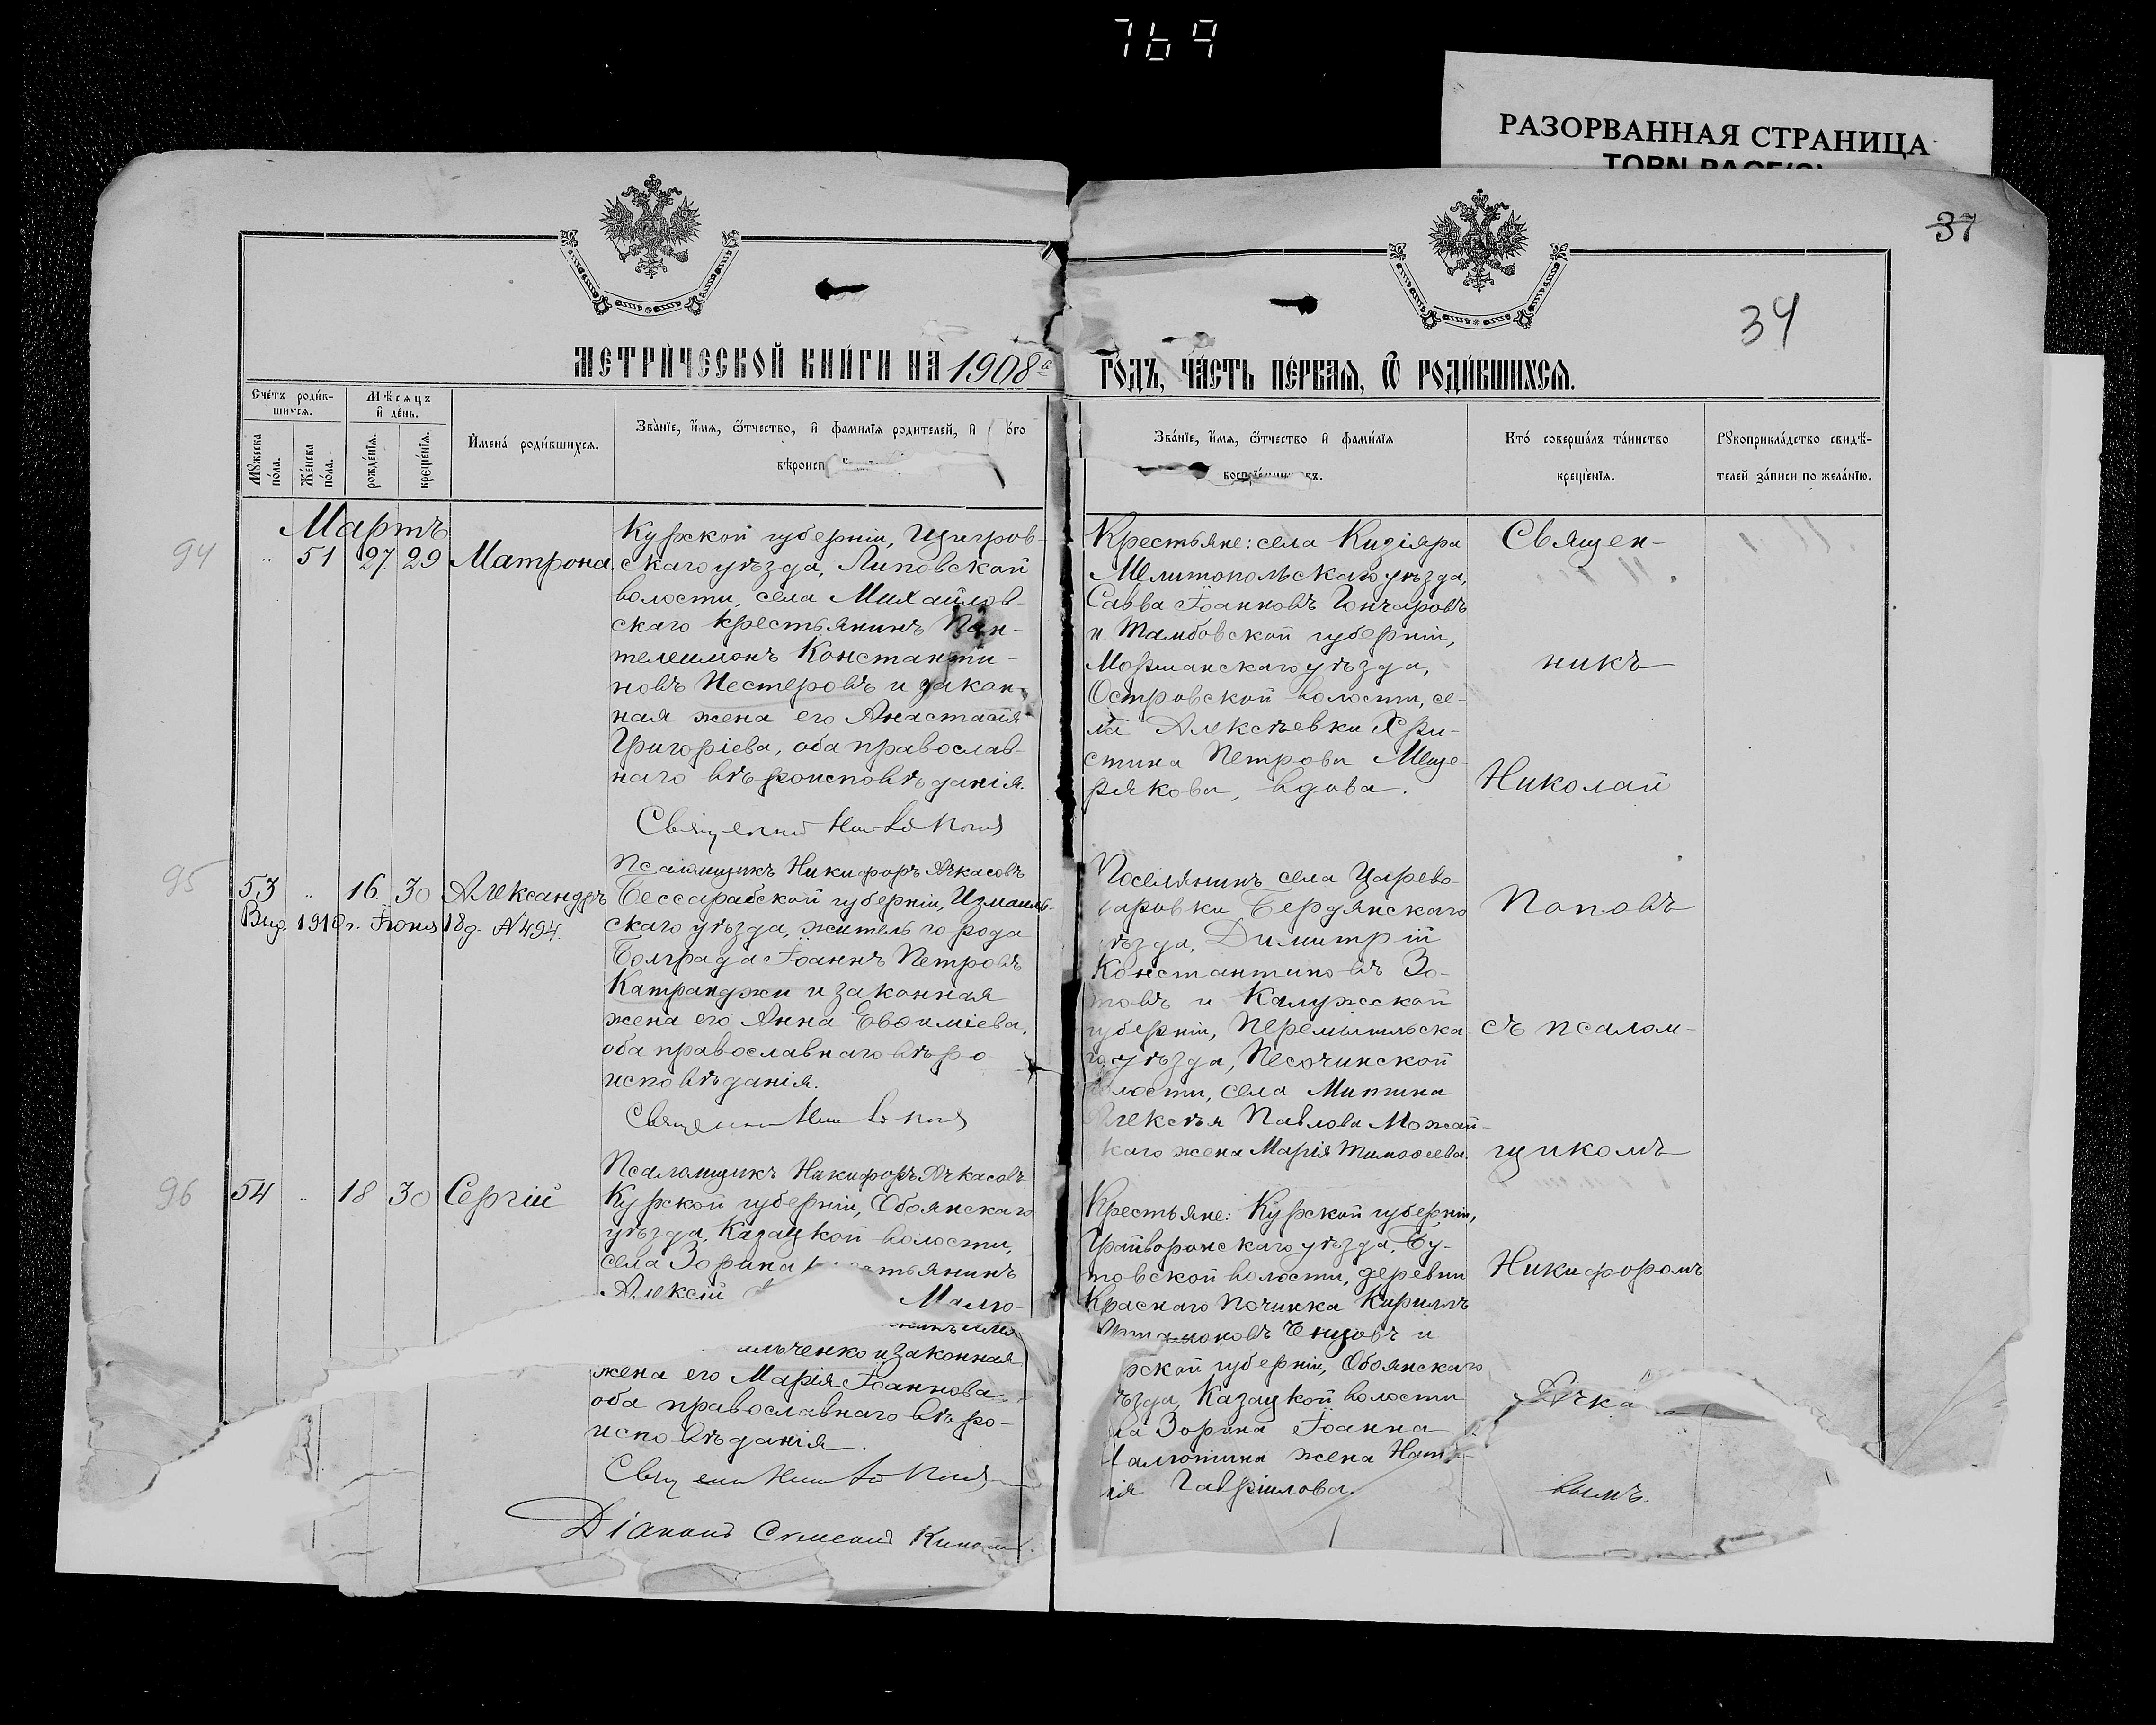 769
РАЗОРВАННАЯ СТРАНИЦА
TORN PAGE(S)
37
34
МЕТРИ́ЧЕСКОЙ КНИ́ГИ НА 1908й
ГО́ДЪ, ЧА́СТЬ ПЕ́РВАЯ, Ѿ РОДИ́ВШИХСЯ.
Сче́тъ роди́в-
шихся.
Мѣ́сяцъ
и҆ де́нь.
Мꙋ́жеска по́ла.
Же́нска по́ла.
рожде́нїя.
креще́нїя.
И҆мена́ роди́вшихся.
Зва́нїе, и҆́мя, ѻ҆́тчество, и҆ фами́лїя родителей, и҆
о́го
вѣроисп
Зва́нїе, и҆́мя, ѻ҆́тчество и҆ фами́лїя
воспрїе́мниковъ.
Кто́ соверша́лъ та́инство
креще́нїя.
Рꙋкоприкла́дство свидѣ́-
телей за́писи по жела́нїю.
Мартъ
94
" 51 27 29 Матрона
Курской губерніи, Щигров-
скаго уѣзда, Липовской
волости, села Михайлов-
скаго крестьянинъ Пан-
телеимонъ Константи-
новъ Нестеровъ и закон-
ная жена его Анастасія
Григоріева, оба православ-
наго вѣроисповѣданія.
Крестьяне: села Кизіяра
Мелитопольскаго уѣзда,
Савва Іоанновъ Гончаровъ
и Тамбовской губерніи,
Моршанскаго уѣзда,
Островской волости, се-
ла Алексѣевки Хри-
стина Петрова Меще-
рякова, вдова.
Священ-
никъ
Николай
Поповъ
съ псалом-
щикомъ
Никифоромъ
Ачка
вымъ.
95
53 " 16 30 Александръ
Выд. 1910 г. Іюня 18 д. № 494.
Псаломщикъ Никифоръ Ачкасовъ
Бессарабской губерніи, Измаиль-
скаго уѣзда, житель города
Болграда Іоаннъ Петровъ
Катранджи и законная
жена его Анна Евѳиміева,
оба православнаго вѣро-
исповѣданія.
Поселянинъ села Царево-
даровки Бердянскаго
уѣзда, Димитрій
Константиновъ Зо-
товъ и Калужской
губерніи, Перемышльска-
го уѣзда, Песочинской
волости, села Митина
Алексѣя Павлова Можай-
скаго жена Марія Тимоѳеева.
96
54 " 18 30 Сергій
Псаломщикъ Никифоръ Ачкасовъ
Курской губерніи, Обоянскаго
уѣзда, Казацкой волости,
села Зорина крестьянинъ
Алексій
Малю-
ильченко и законная
жена его Марія Іоаннова,
оба православнаго вѣро-
исповѣданія.
Діаконъ Симеонъ
Крестьяне: Курской губерніи,
Грайворонскаго уѣзда, Бу-
товской волости, деревни
Краснаго Починка Кириллъ
и
рской губерніи, Обоянскаго
ѣзда, Казацкой волости
ла Зорина Іоанна
алютина жена Ната-
лія Гавріилова.